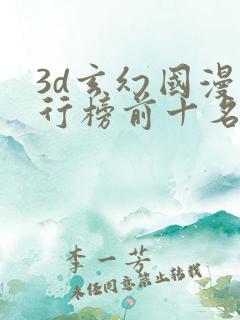 3d玄幻國漫
行榜前十名
李一芳
未经同意禁止转载